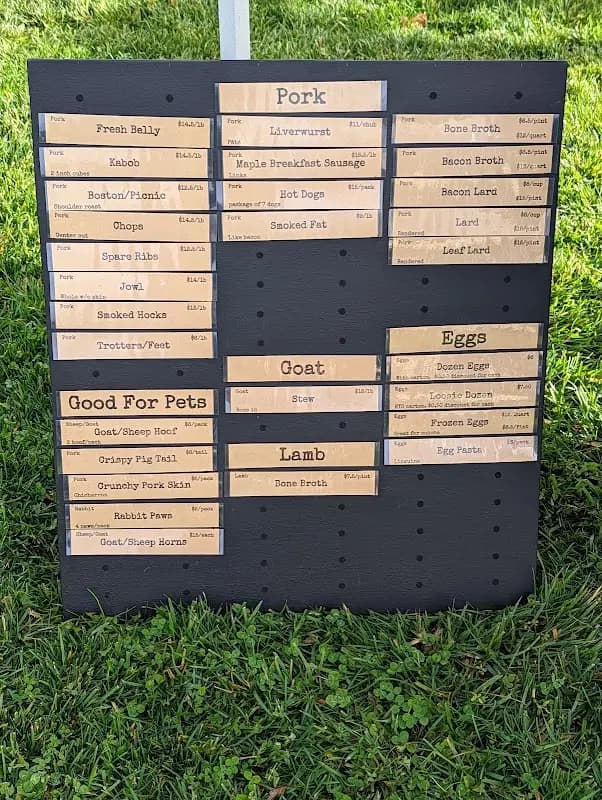 Pork
Pork $14.5/lb
Fresh Belly
Pork $14.5/lb
Kabob
2 inch cubes
Pork $12.5/lb
Boston/Picnic
Shoulder roast
Pork $14.5/lb
Chops
Center cut
Pork $12.5/lb
Spare Ribs
Pork $14/lb
Jowl
Whole w/o skin
Pork $12/lb
Smoked Hocks
Pork $6/lb
Trotters/Feet
Good For Pets
Sheep/Goat $6/pack
Goat/Sheep Hoof
2 hoof/pack
$6/tail
Crispy Pig Tail
Pork $6/pack
Crunchy Pork Skin
Chicharron
Rabbit $6/pack
Rabbit Paws
4 paws/pack
Sheep/Goat $15/each
Goat/Sheep Horns
Pork $11/chub
Liverwurst
Pâté
Pork
Maple Breakfast Sausage
Links
Pork $15/pack
Hot Dogs
package of 7 dogs
Pork
Smoked Fat
Like bacon
Goat
Goat $15/lb
Stew
Lamb
Lamb $7.5/pint
Bone Broth
Pork $6.5/pint
Bone Broth
$12/quart
Pork
Bacon Broth
Pork $8/cup
Bacon Lard
$15/pint
Pork $8/cup
Lard
Rendered $15/pint
Pork $15/pint
Leaf Lard
Rendered
Eggs
Eggs
Dozen Eggs
With carton. $0.50 discount for each
Eggs $7.50
Loosie Dozen
BYO carton. $0.50 discount for each
Eggs
Frozen Eggs
Eggs
Egg Pasta
Linguine